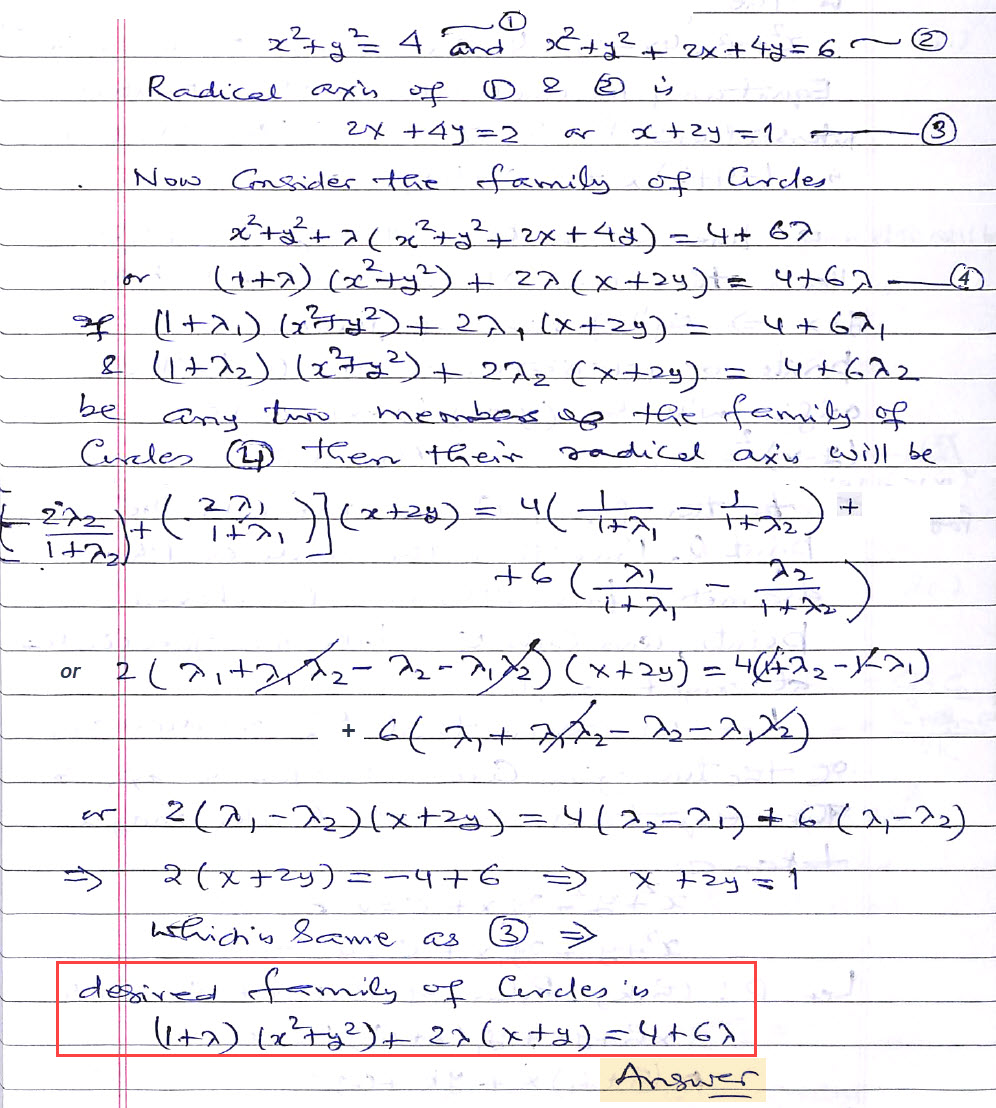 x²+y²= 4 ~① and x²+y²+ 2x+4y=6 ~②
Radical axis of ① & ② is
2x +4y =2 or x+2y =1 —③
Now Consider the family of Circles
x²+y²+ λ(x²+y²+2x+4y)=4+ 6λ
or (1+λ) (x²+y²) + 2λ(x+2y) = 4+6λ —④
If (1+λ₁) (x²+y²)+ 2λ₁(x+2y) = 4+6λ₁
& (1+λ₂) (x²+y²) + 2λ₂ (x+2y) = 4+6λ₂
be any two members of the family of
Circles ④ then their radical axis will be
[(-2λ₂/(1+λ₂))+(2λ₁/(1+λ₁))](x+2y) = 4(1/(1+λ₁) - 1/(1+λ₂)) +
+6(λ₁/(1+λ₁) - λ₂/(1+λ₂))
or 2(λ₁+λ₁λ₂-λ₂-λ₁λ₂)(x+2y)=4(1+λ₂-1-λ₁)
+ 6(λ₁+λ₁λ₂-λ₂-λ₁λ₂)
or 2(λ₁-λ₂)(x+2y) = 4(λ₂-λ₁) + 6(λ₁-λ₂)
⇒ 2(x+2y)=-4+6 ⇒ x+2y=1
which is Same as ③ ⇒
desired family of Circles is
(1+λ) (x²+y²)+ 2λ(x+y)=4+6λ
Answer